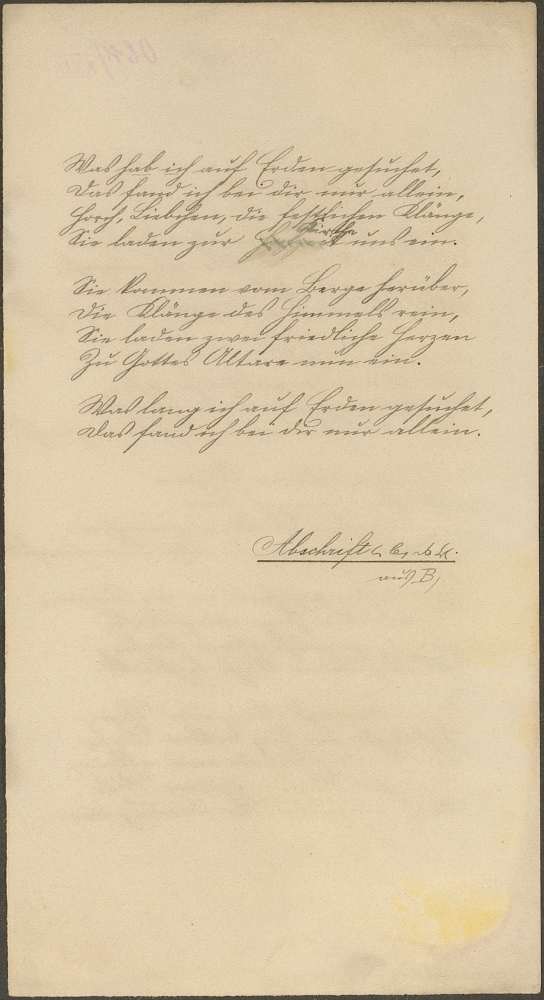 Was hab ich auf Erden gesuchet,
Das fand ich bei dir nur allein,
Horch, Liebchen, die festlichen Klänge,
Sie laden zur Kirche uns ein.
Sie kommen vom Berge herüber,
Die Klänge des Himmels rein,
Sie laden zwei friedliche Herzen
Zu Gottes Altare nun ein.
Was lang ich auf Erden gesuchet,
Das fand ich bei dir nur allein.
Abschrift
aus B,